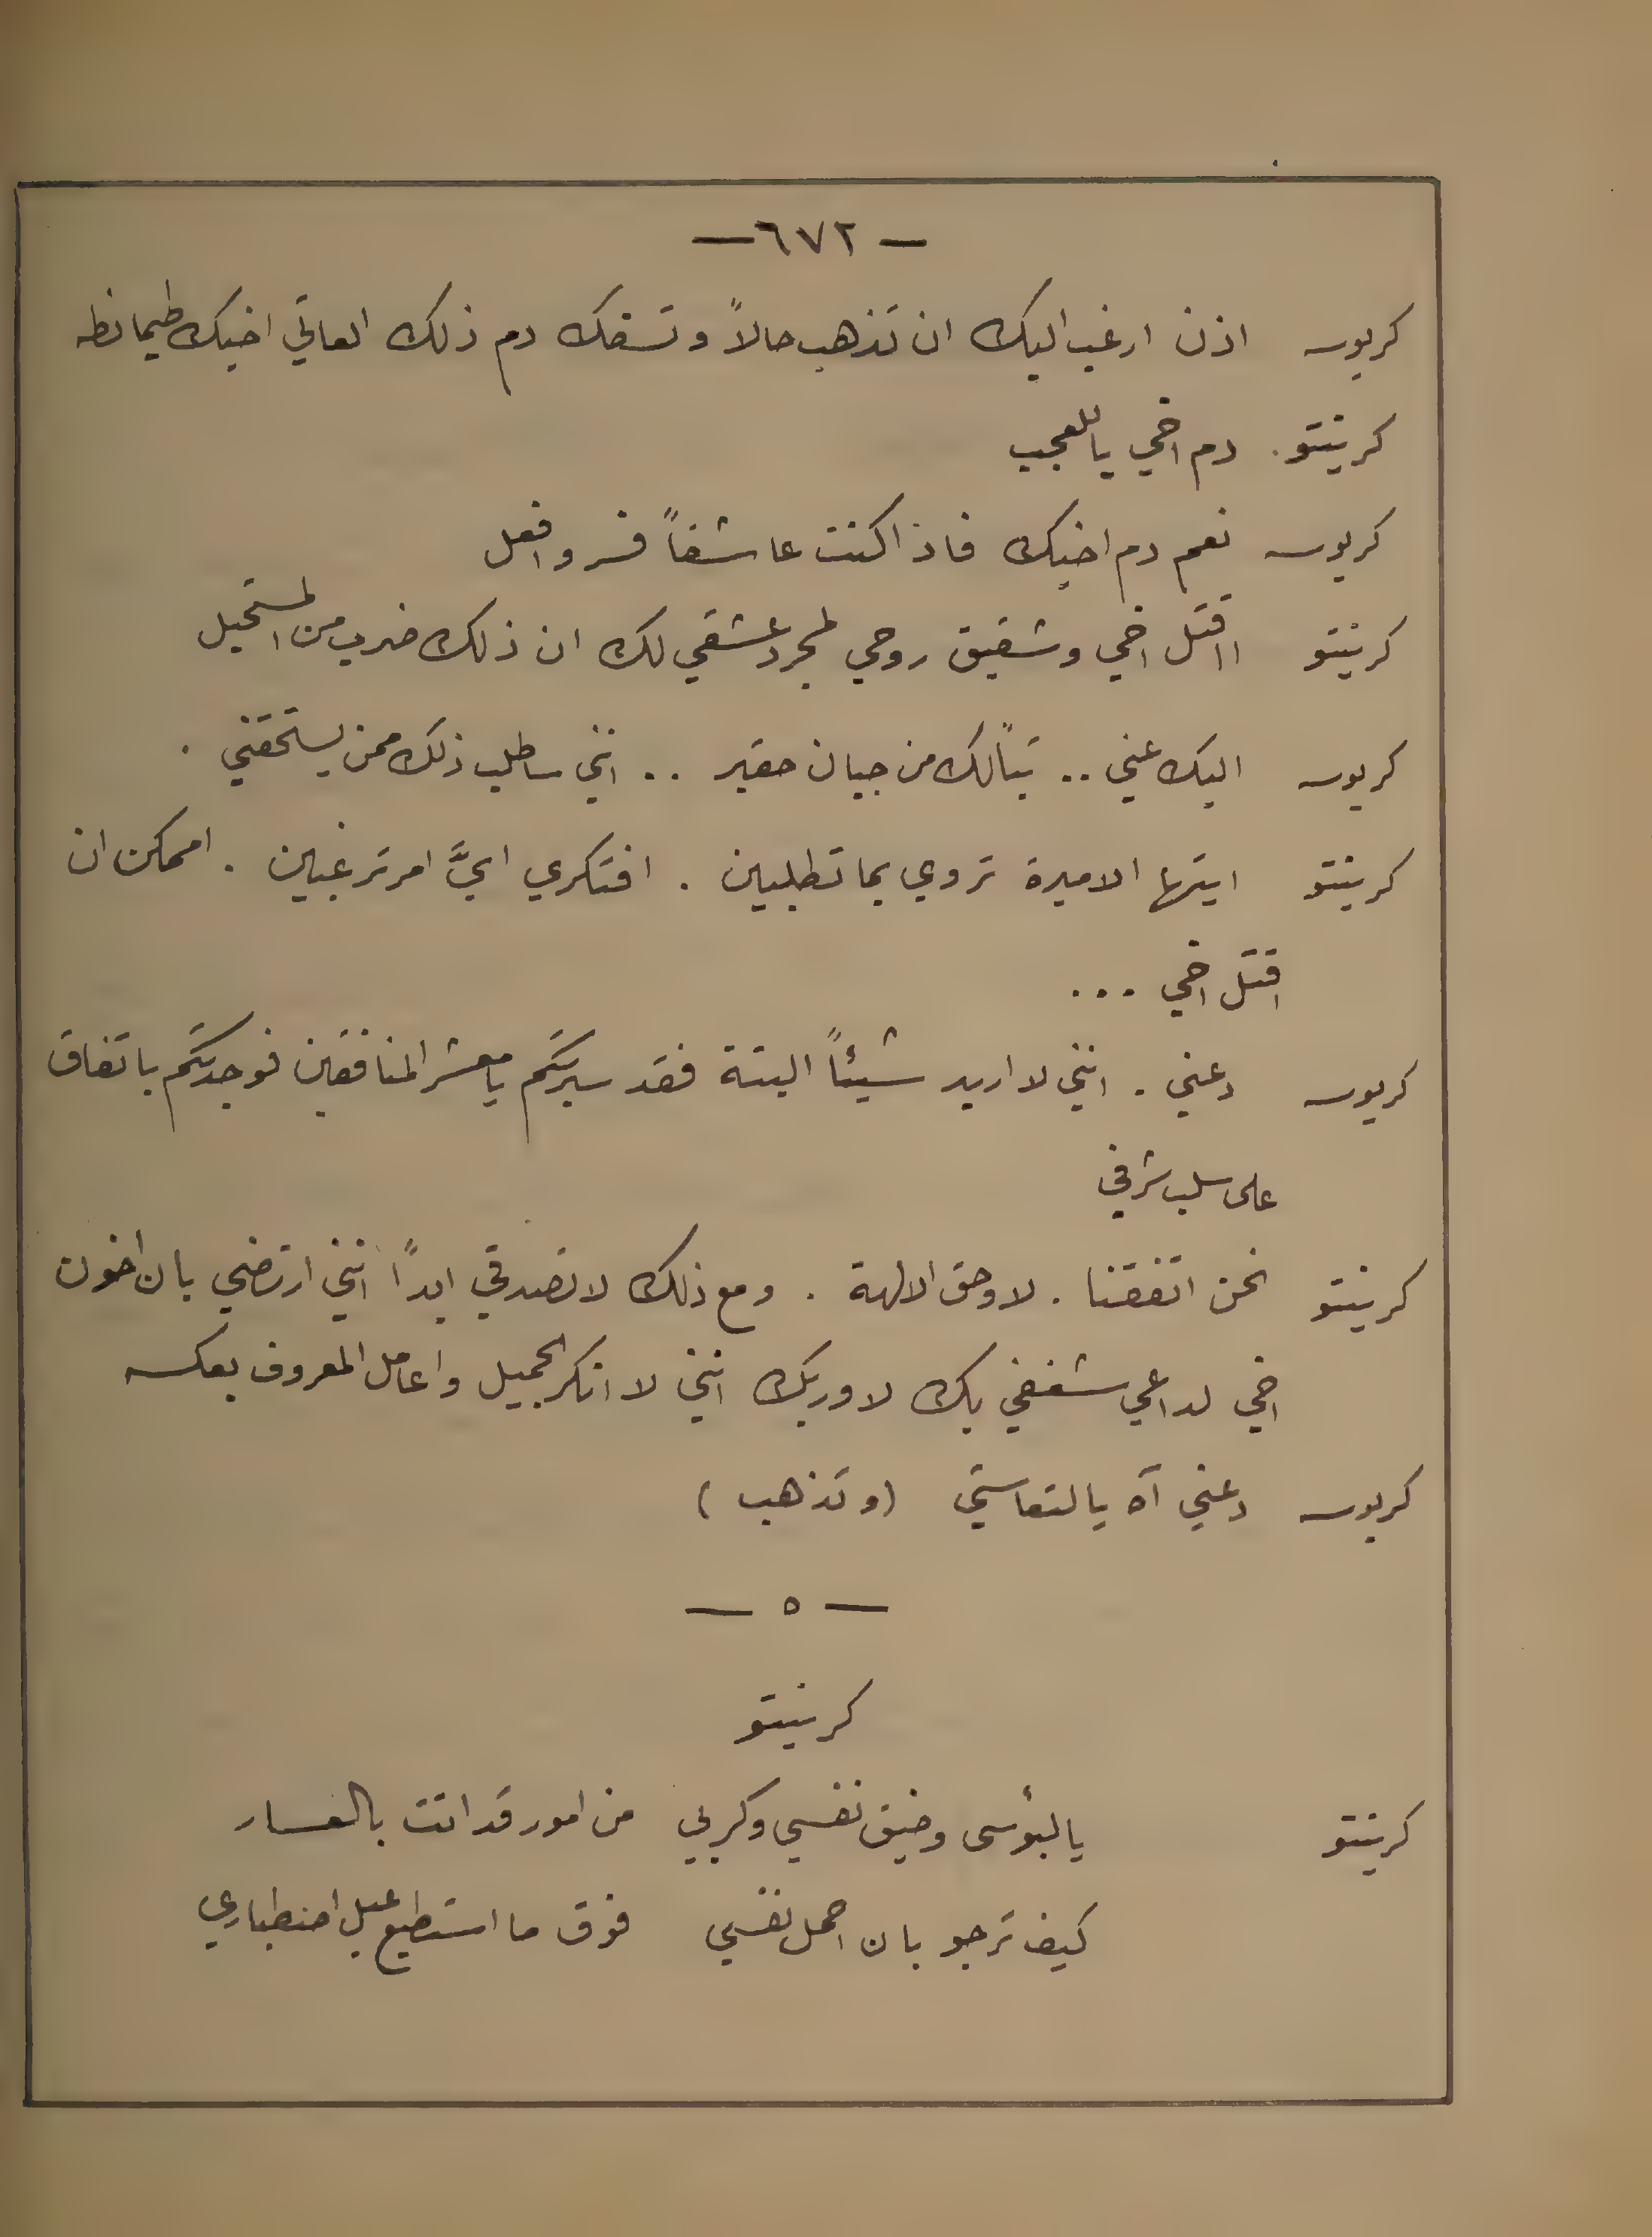 — ٦٧٢ —
كريوسه اذن ارغب اليك ان تذهب حالاً وتسفك دم ذلك العاتي اخيك طيمانطه
كرينتو . دم اخي ياللعجب
كريوسه نعم دم اخيك فاذا كنت عاشقاً فسر وافعل
كرينتو ااقتل اخي وشقيق روحي لمجرد عشقي لك ان ذلك ضرب من المستحيل
كريوسه اليك عني .. تباً لك من جبان حقير .. انني ساطلب ذلك ممن يستحقني .
كرينتو ايتها الاميرة تروي بما تطلبين . افتكري ايَّ امر ترغبين . اممكن ان
اقتل اخي ...
كريوسه دعني . انني لا اريد شيئاً البتة فقد سبرتكم يا معشر المنافقين فوجدتكم باتفاق
على سلب شرفي
كرينتو نحن اتفقنا . لا وحق الالهة . ومع ذلك لا تصدقي ابداً انني ارتضي بان اخون
اخي لداعي شغفي بك لا وربك انني لا انكر الجميل واعامل المعروف بعكسه
كريوسه دعني آه يالتعاستي (وتذهب)
— ٥ —
كرينتو
كرينتو يالبؤسى وضيق نفسي وكربي من امور قد اتت بالعسار
كيف ترجو بان احمل نفسي فوق ما استطيع عيل اصطباري